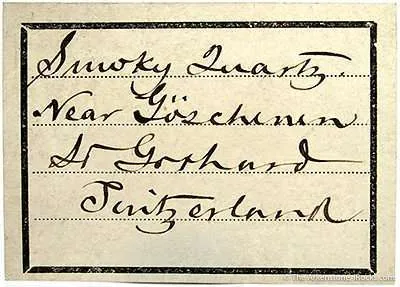 Smoky Quartz.
Near Göschenen
St Gothard
Switzerland
© The Arkenstone iRocks.com